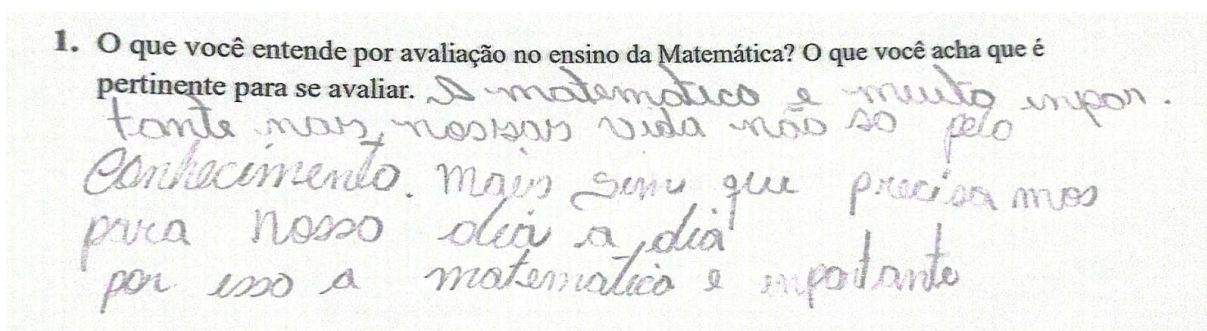 1. O que você entende por avaliação no ensino da Matemática? O que você acha que é
pertinente para se avaliar. A matematica e muito impor.
tante nas nossas vida não so pelo
conhecimento. mais sim que precisamos
para nosso dia a dia
por isso a matematica e importante